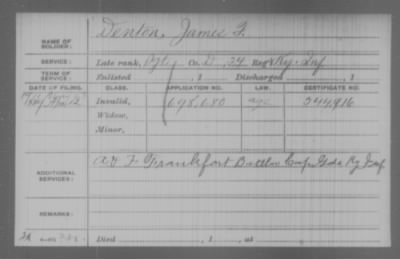 NAME OF SOLDIER: Denton, James F.
SERVICE: Late rank, Co. D, 34 Reg't Ky. Inf
TERM OF SERVICE: Enlisted , 1 Discharged , 1
DATE OF FILING. CLASS. APPLICATION NO. LAW. CERTIFICATE NO.
Invalid, 698,680 344,916
Widow,
Minor,
ADDITIONAL SERVICES: Frankfort Battln Ky Inf
REMARKS:
Died , 1 , at